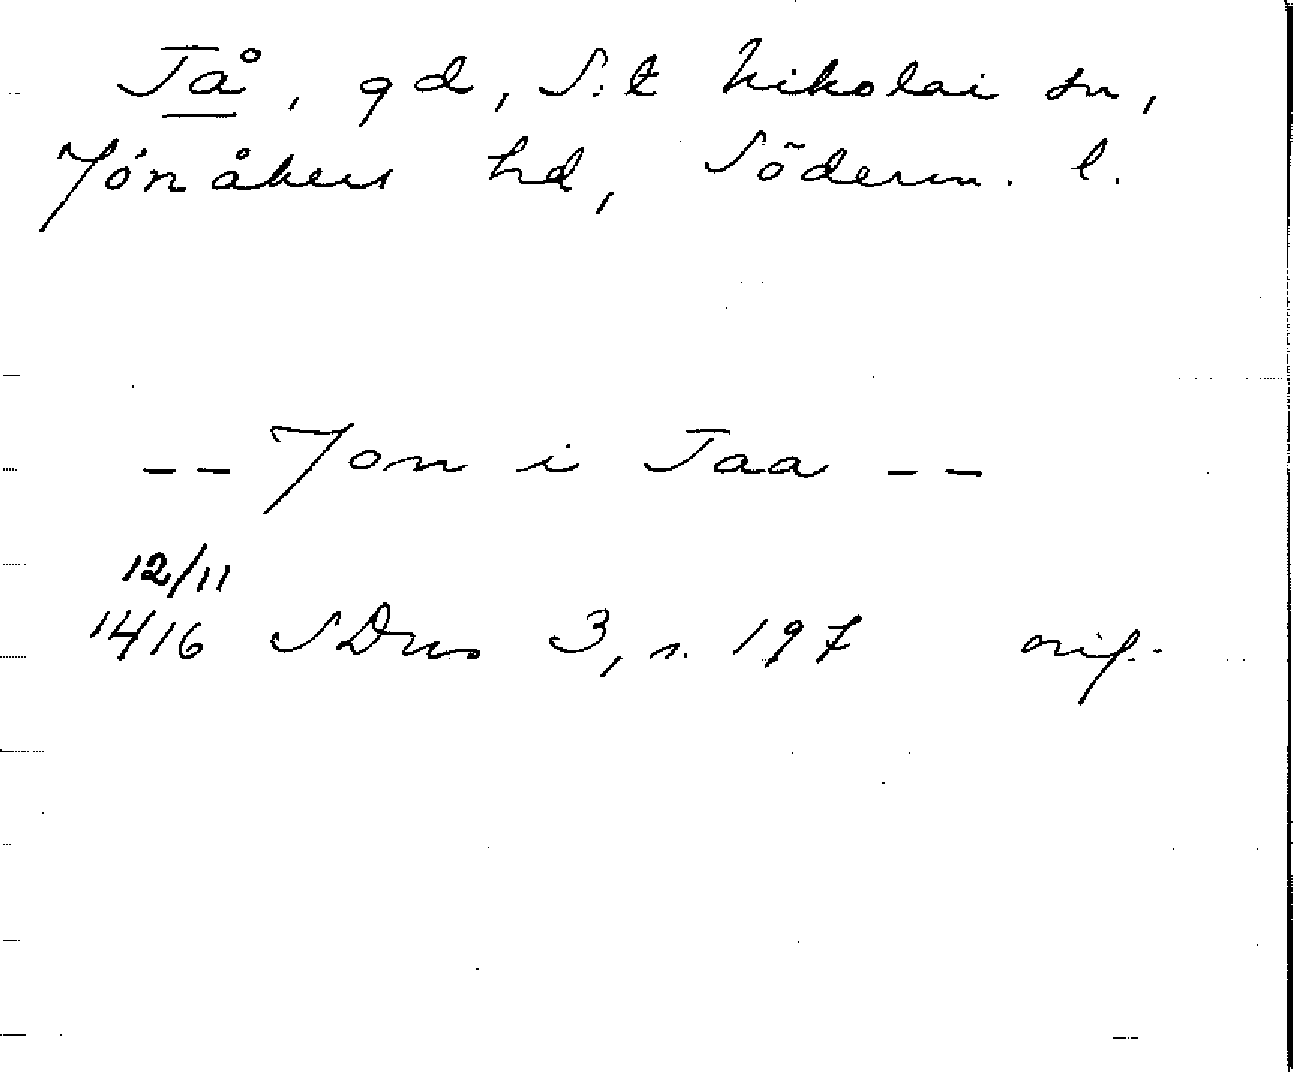 Tå, gd, S:t Nikolai sn,
Jönåkers hd, Söderm. l.
-- Jon i Taa --
12/11
1416 SDns 3, s. 197 orig.